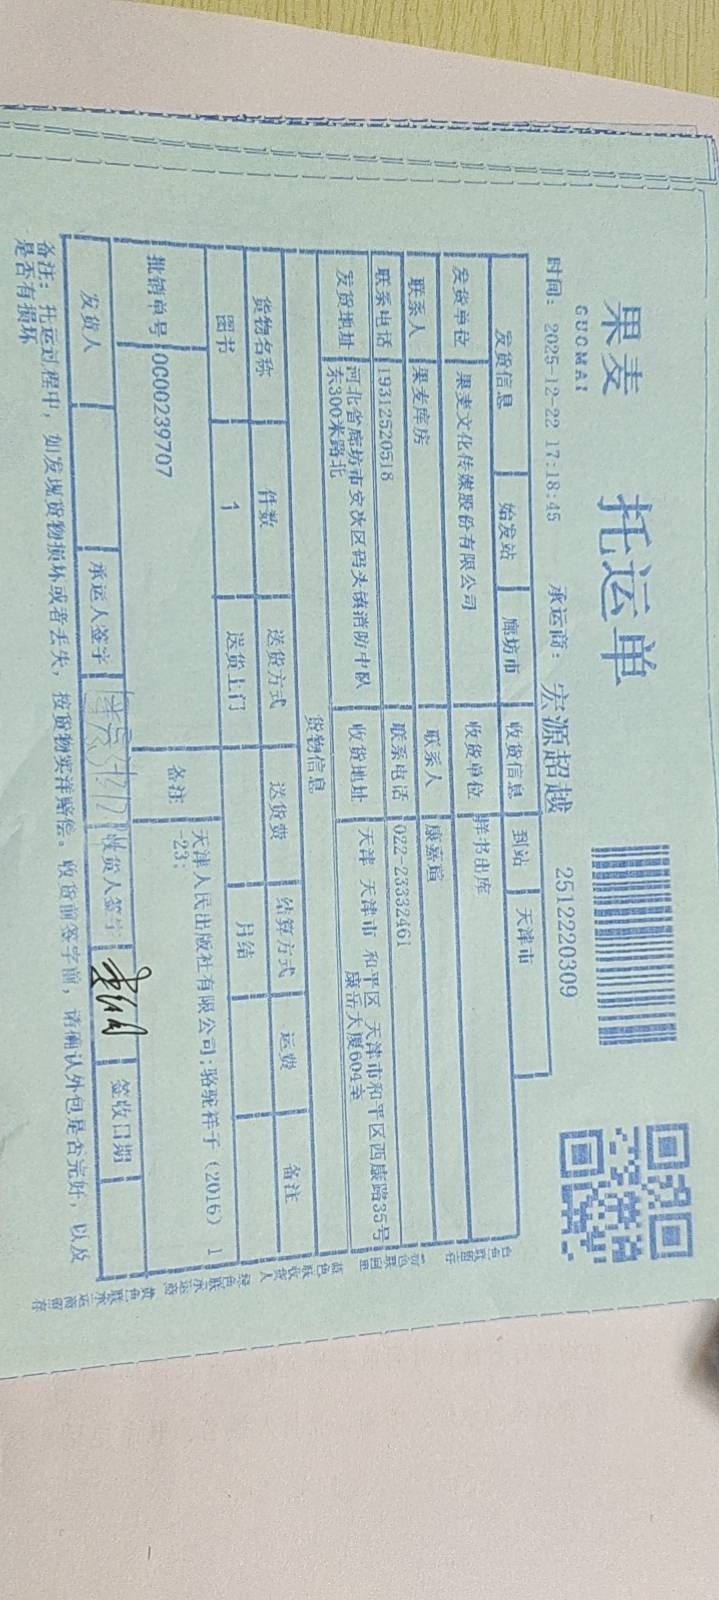 果麦
GUOMAI
托运单
时间: 2025-12-22 17:18:45 承运商: 宏源超越 2512220309
发货信息 始发站 廊坊市 收货信息 到站 天津市
发货单位 果麦文化传媒股份有限公司 收货单位 样书出库
联系人 果麦库房 联系人 康嘉瑄
联系电话 19312520518 联系电话 022-23332461
发货地址 河北省廊坊市安次区码头镇消防中队 收货地址 天津 天津市 和平区 天津市和平区西康路35号
东300米路北 康岳大厦604室
货物信息
货物名称 件数 送货方式 送货费 结算方式 运费 备注
图书 1 送货上门 月结
批销单号 0C00239707 备注 天津人民出版社有限公司:骆驼祥子(2016) 1
-23;
发货人 承运人签字 收货人签字 签收日期
备注: 托运过程中, 如发现货物损坏或者丢失, 按货物实洋赔偿。收货前签字前, 请确认外包是否完好, 以及
是否有损坏